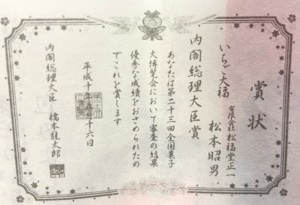 賞状
有限会社 松福堂正一
松本昭男
いちご大福
内閣総理大臣賞
あなたは第二十三回全国菓子
大博覧会において審査の結果
優秀な成績をおさめられたの
でこれを賞します
平成十年 月十六日
内閣総理大臣 橋本龍太郎